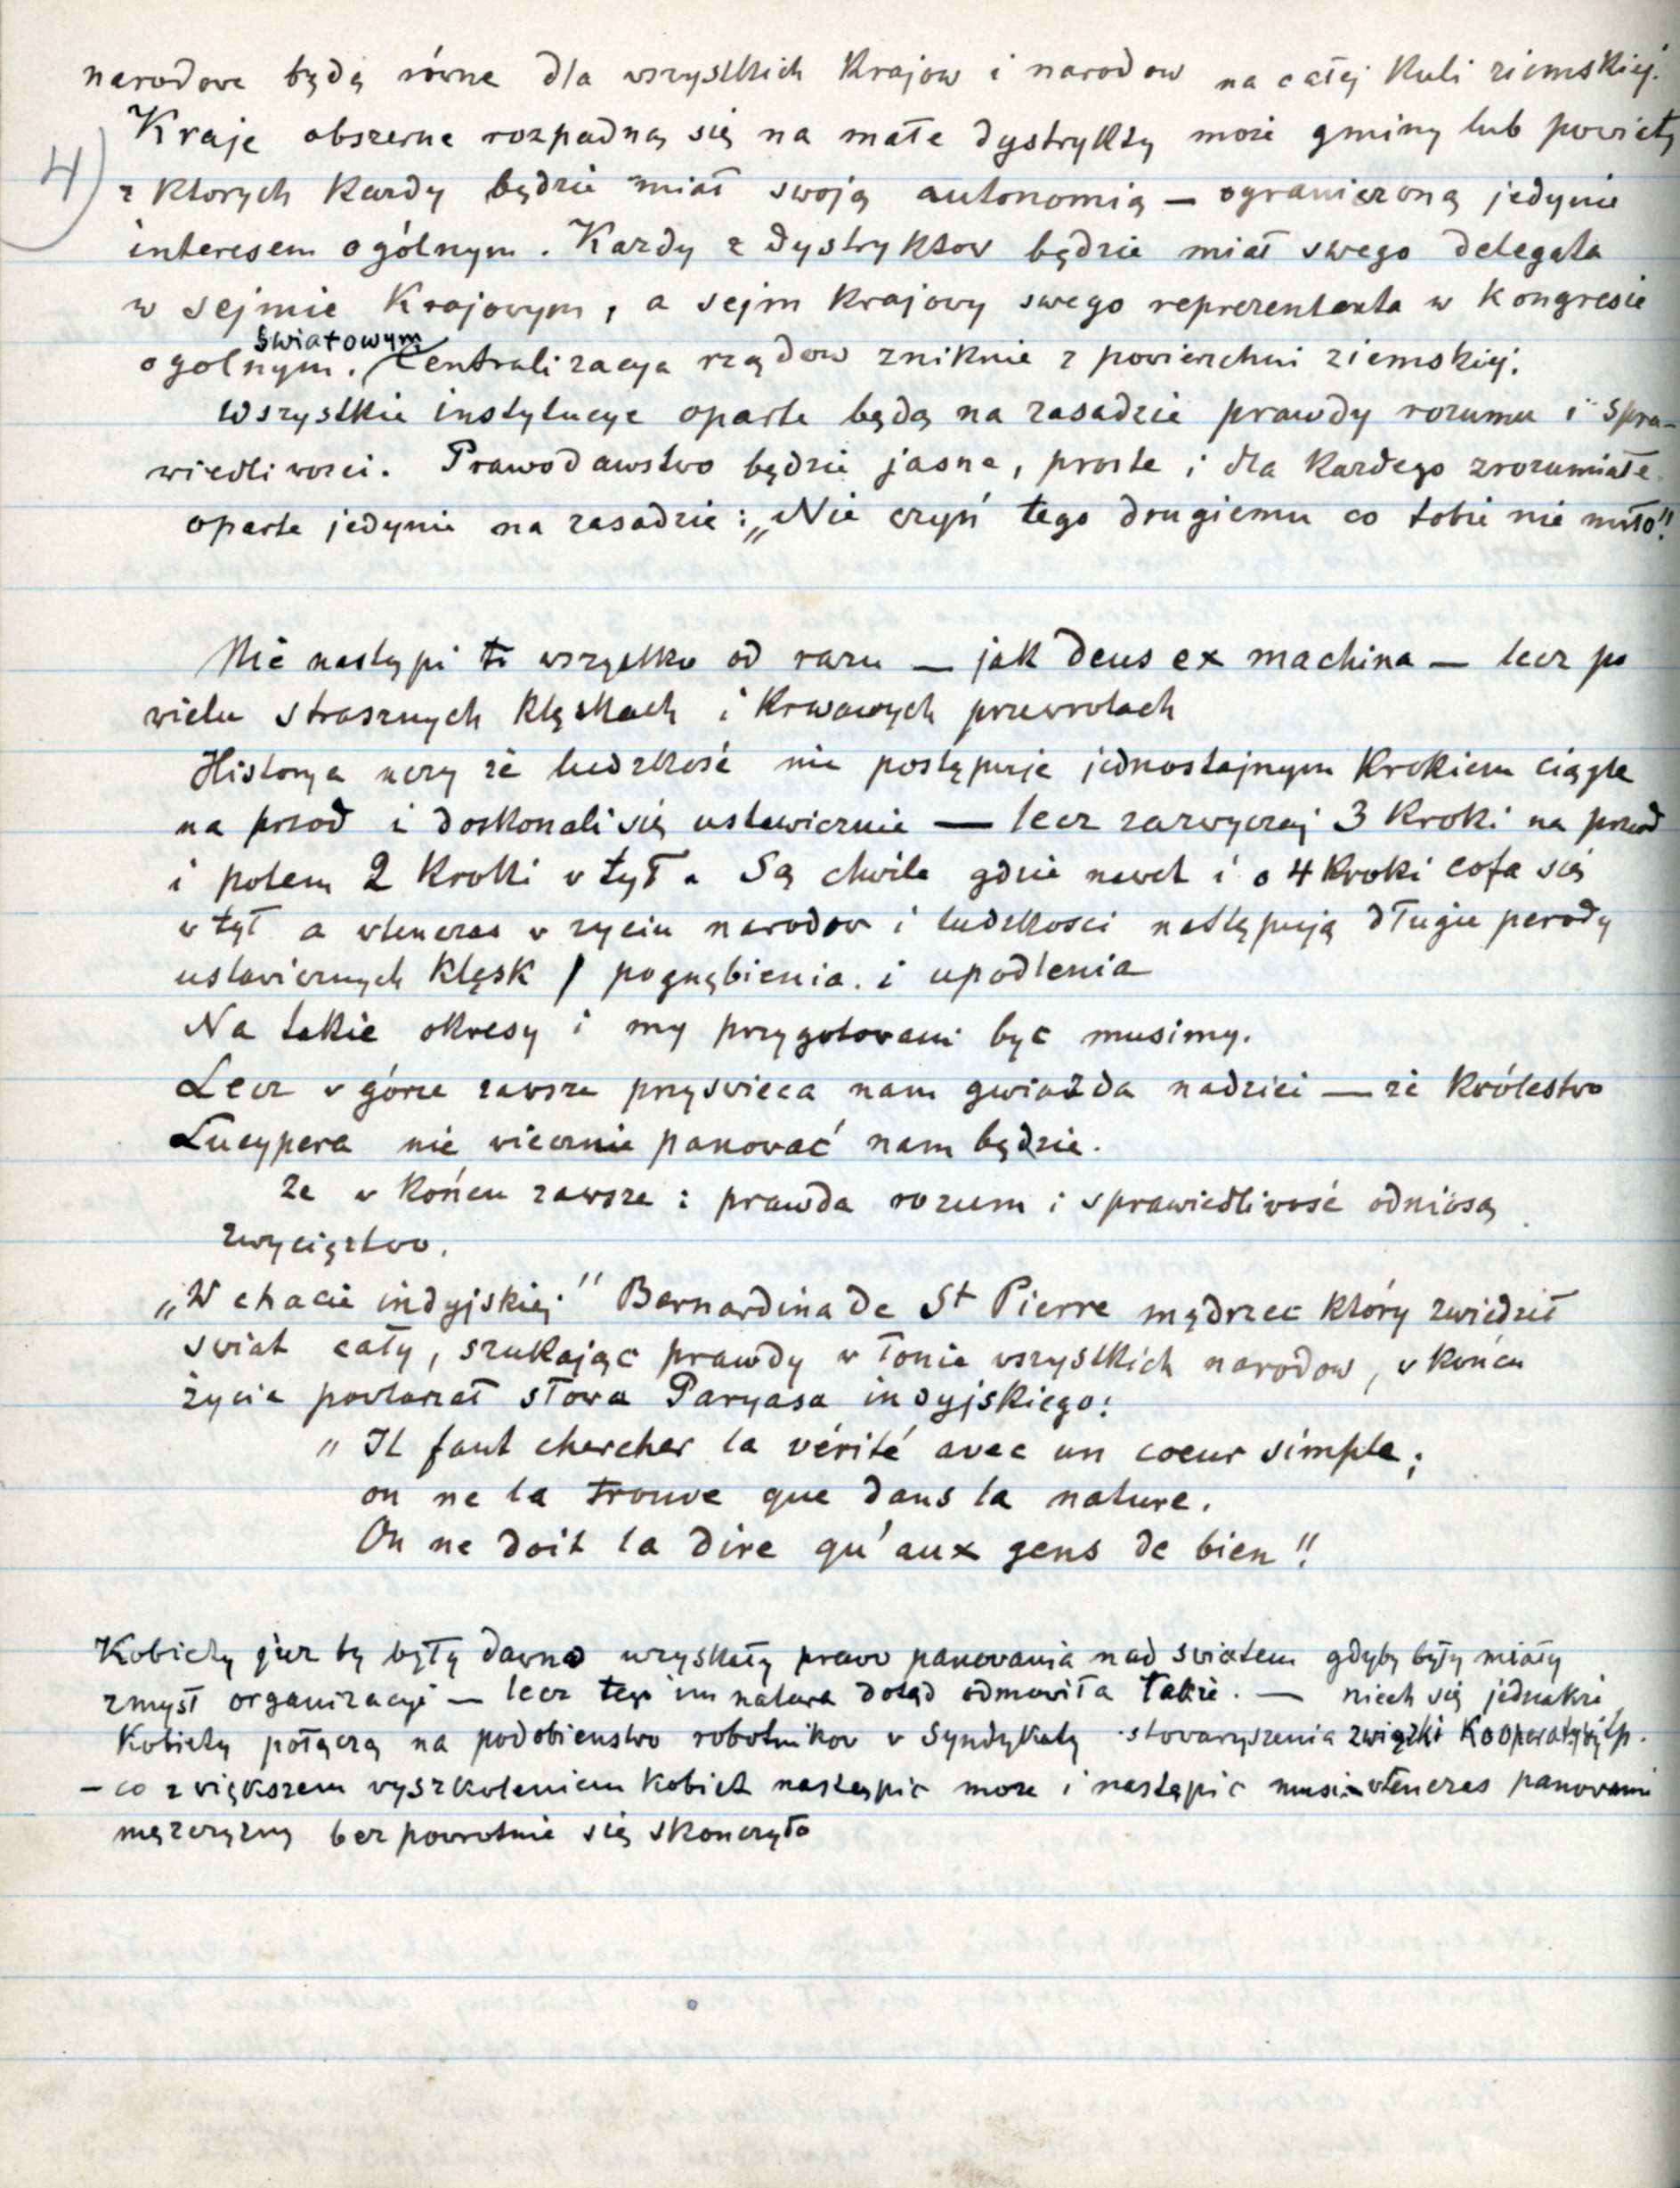 narodowe będą równe dla wszystkich krajow i narodow na całej kuli ziemskiej.
Kraje obszerne rozpadną się na małe dystrykty może gminy lub powiaty
4)
z ktorych kazdy będzie miał swoją autonomią — ograniczoną jedynie
interesem ogólnym. Kazdy z dystryktow będzie miał swego delegata
w sejmie Krajowym, a sejm krajowy swego reprezentanta w kongresie
swiatowym
ogolnym. Centralizacya rządow zniknie z powierzchni ziemskiej.
Wszystkie instytucye oparte będą na zasadzie prawdy rozumu i spra-
wiedliwosci. Prawodawstwo będzie jasne, proste i dla kazdego zrozumiałe
oparte jedynie na zasadzie: „Nie czyń tego drugiemu co tobie nie miło".
Nie nastąpi to wszystko od razu — jak deus ex machina — lecz po
wielu strasznych klęskach i krwawych przewrotach
Historya uczy że ludzkość nie postępuje jednostajnym krokiem ciągle
na przod i doskonali się ustawicznie — lecz zazwyczaj 3 kroki na przod
i potem 2 kroki w tył. Są chwile gdzie nawet i o 4 kroki cofa się
w tył a wtenczas w zyciu narodow i ludzkosci następują długie perody
ustawicznych klęsk / pognębienia. i upodlenia
Na takie okresy i my przygotowani być musimy.
Lecz w górze zawsze przyswieca nam gwiazda nadziei — że królestwo
Lucypera nie wiecznie panować nam będzie.
Ze w końcu zawsze: prawda rozum i sprawiedliwość odniosą
zwycięztwo.
„W chacie indyjskiej" Bernardina de St Pierre mędrzec który zwiedził
swiat cały, szukając prawdy w łonie wszystkich narodow, w końcu
życia powtarzał słowa Paryasa indyjskiego:
„ Il faut chercher la vérité avec un coeur simple;
on ne la trouve que dans la nature.
On ne doit la dire qu'aux gens de bien"!
Kobiety już by były dawno uzyskały prawo panowania nad swiatem gdyby były miały
zmysł organizacyi — lecz tego im natura dotąd odmowiła także. — niech się jednakże
Kobiety połączą na podobienstwo robotnikow w Syndykaty stowaryszenia związki Kooperatywy itp.
- co z większem wyszkoleniem kobiet nastąpic moze i nastąpic musi - wtenczas panowanie
męzczyzny bezpowrotnie się skonczyło